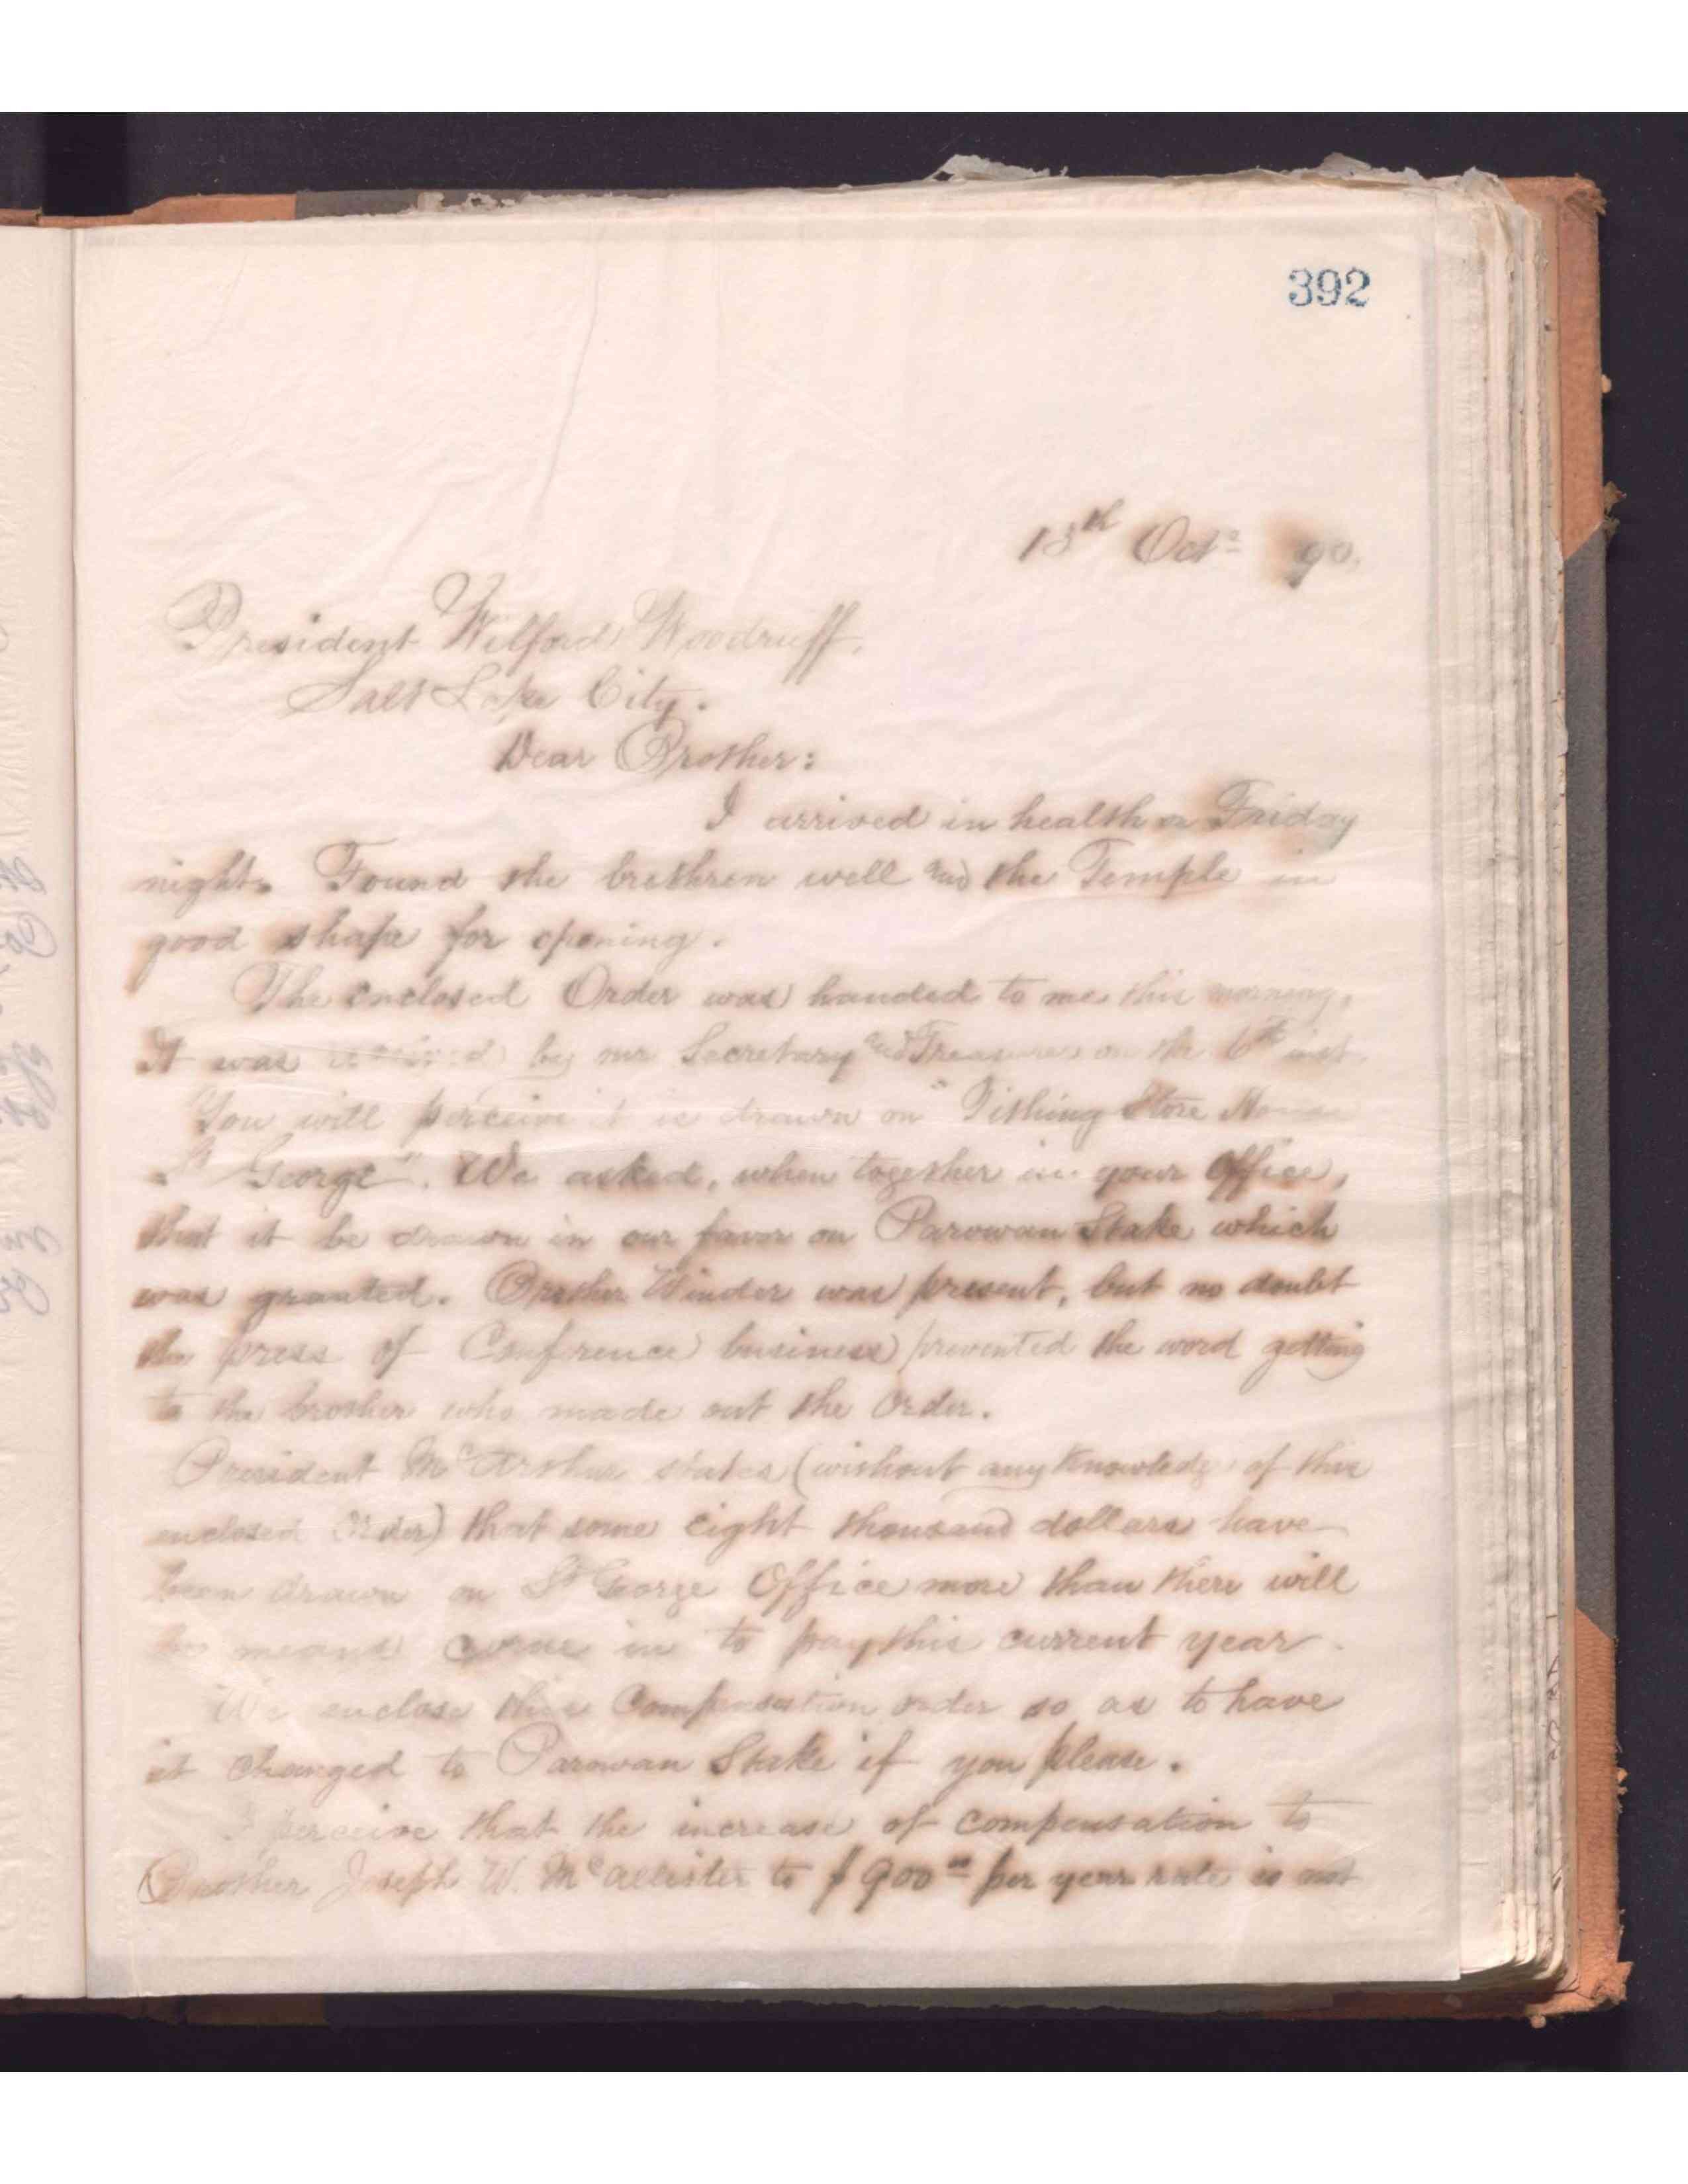 392
13th Octr 90.
President Wilford Woodruff,
Salt Lake City.
Dear Brother:
I arrived in health on Friday
night. Found the brethren well and the Temple in
good shape for opening.
The enclosed Order was handed to me this morning,
It was received by our Secretary and Treasurer on the 6th inst.
You will perceive it is drawn on "Tithing Store House
St George". We asked, when together in your Office,
that it be drawn in our favor on Parowan Stake which
was granted. Brother Winder was present, but no doubt
the press of Conference business prevented the word getting
to the brother who made out the Order.
President McArthur states (without any knowledge of this
enclosed Order) that some eight thousand dollars have
been drawn on St George Office more than there will
be means come in to pay this current year.
We enclose this Compensation order so as to have
it changed to Parowan Stake if you please.
I perceive that the increase of compensation to
Brother Joseph W. McAllister to $900.00 per year rate is not